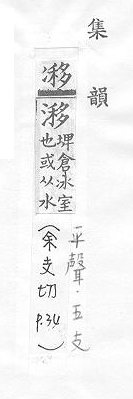 集韻
埤倉冰室
也或从水
平聲．五支
(余支切 P.34)